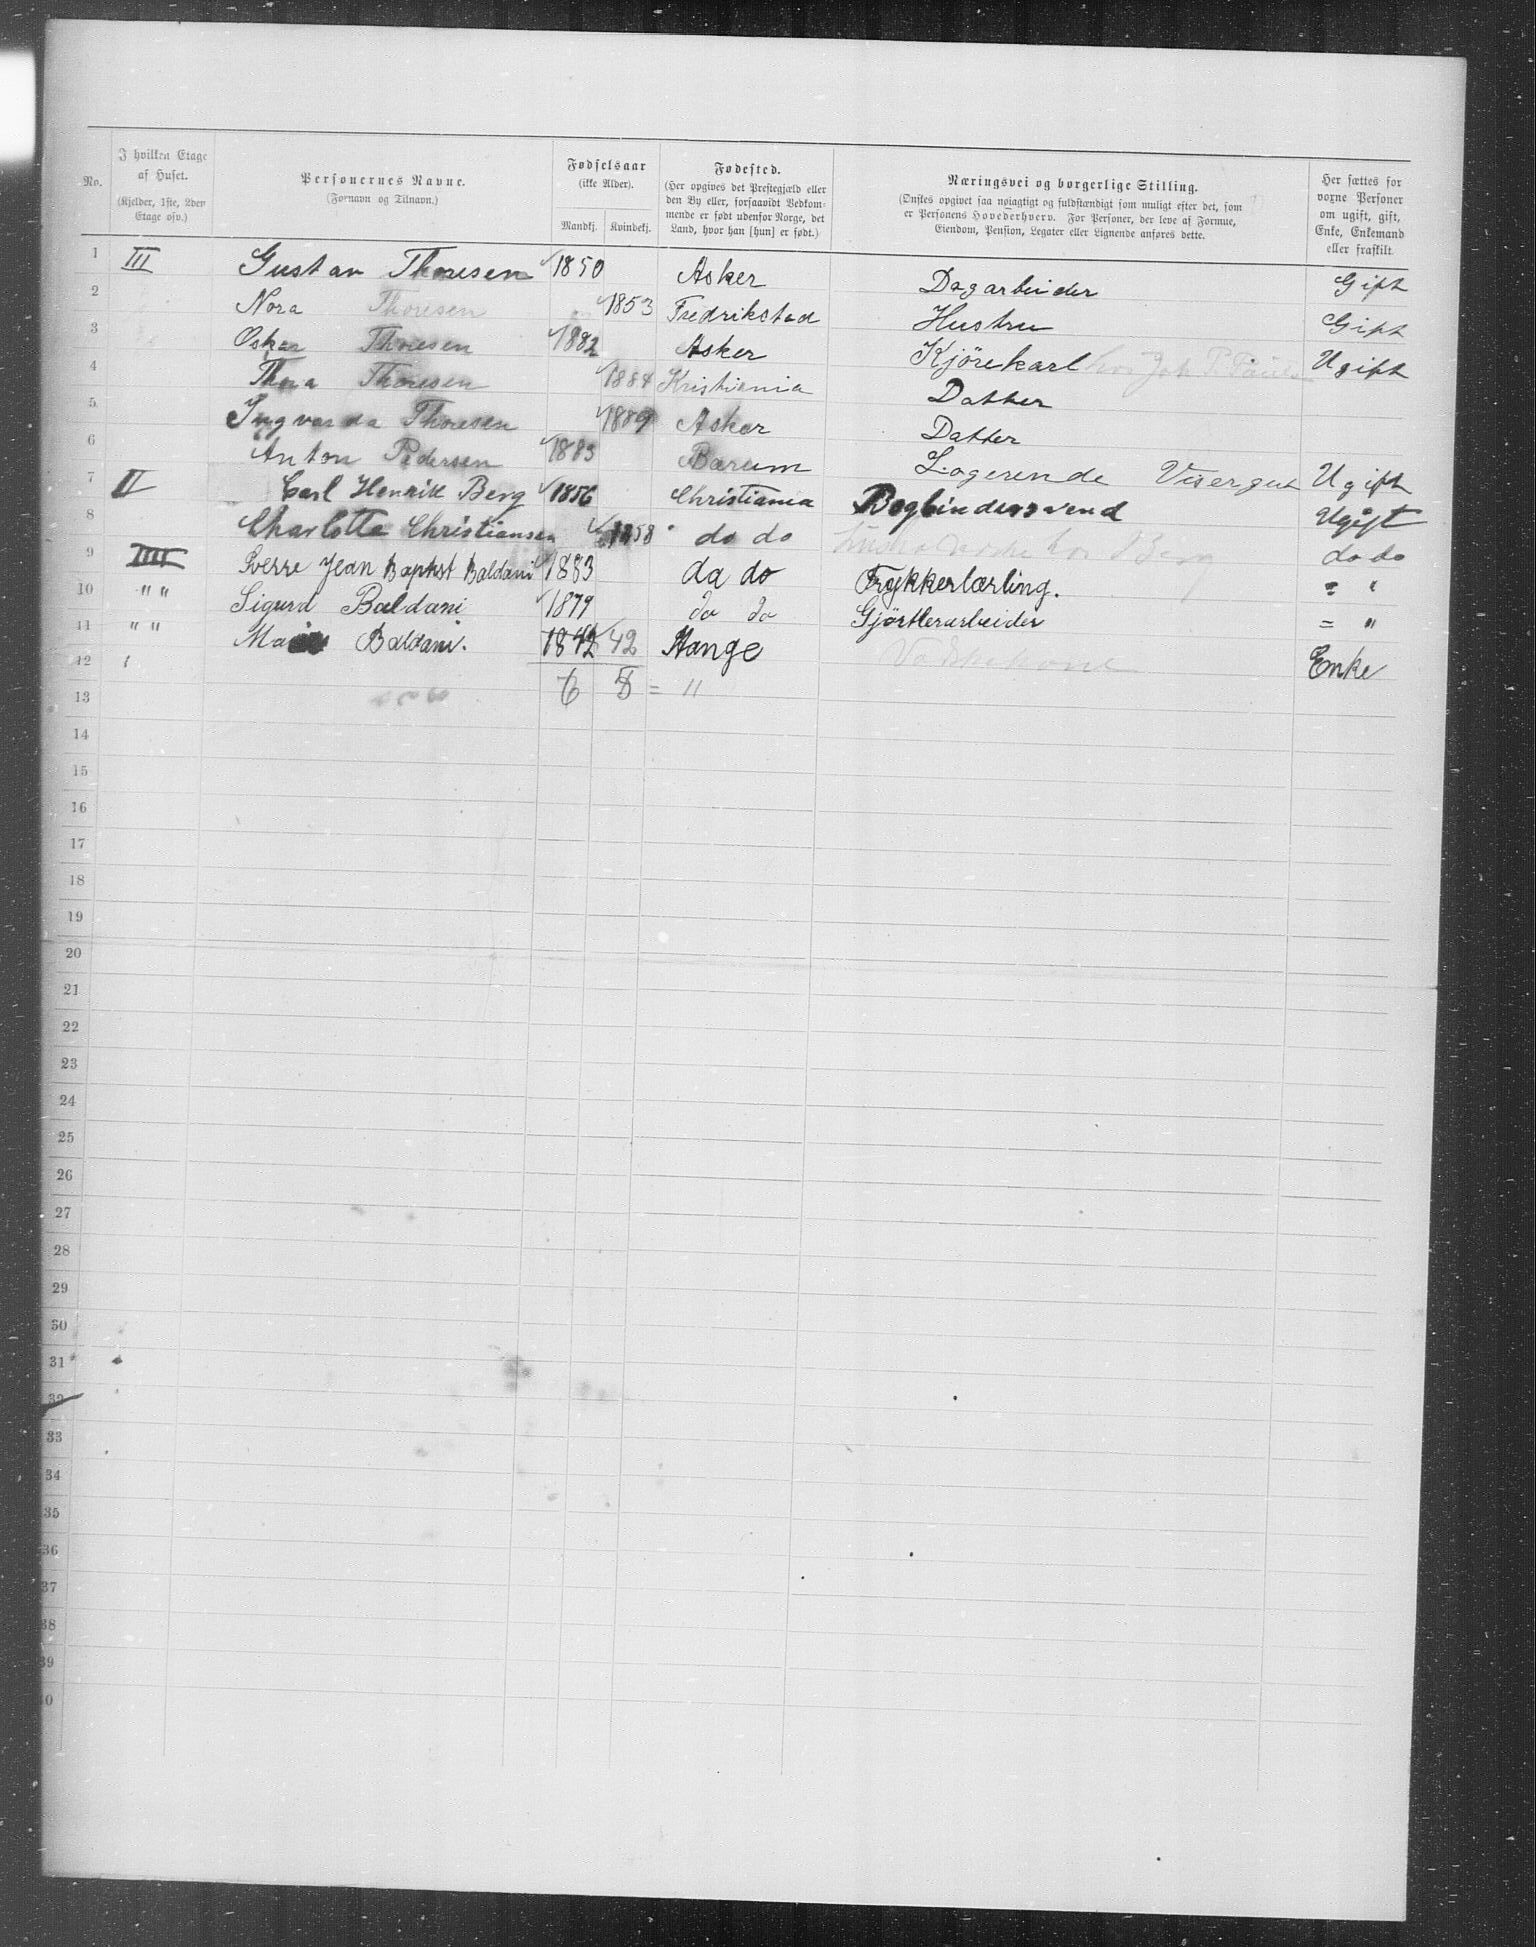 No. I hvilken Etage af Huset. (Kjelder, 1ste, 2den Etage osv.) Personernes Navne. (Fornavn og Tilnavn.) Fødselsaar (ikke Alder). Mandkj. Kvindekj. Fødested. (Her opgives det Prestegjæld eller den By eller, forsaavidt Vedkommende er født udenfor Norge, det Land, hvor han [hun] er født.) Næringsvei og borgerlige Stilling. (Ønskes opgivet saa nøiagtigt og fuldstændigt som muligt efter det, som er Personens Hovederhverv. For Personer, der leve af Formue, Eiendom, Pension, Legater eller Lignende anføres dette. Her sættes for voxne Personer om ugift, gift, Enke, Enkemand eller fraskilt.
1 III Gustav Thoresen 1850 Asker Dagarbeider Gift
2 Nora Thoresen 1853 Fredrikstad Hustru Gift
3 Oskar Thoresen 1882 Asker Kjörekarl hos Joh. P. Ugift
4 Thora Thoresen 1884 Kristiania Datter
5 Ingvarda Thoresen 1889 Asker Datter
6 Anton Pedersen 1883 Bærum Logerende Visergut Ugift
7 II Carl Henrik Berg 1856 Christiania Bogbindersvend Ugift
8 Charlotte Christiansen 1858 do do hos Berg do do
9 IIII Sverre Jean Baptist Baldani 1883 do do Trykkerlærling. = "
10 " " Sigurd Baldani 1879 do do Gjörtlerarbeider = "
11 " " Baldani. 1842 42 Hange Vaskekone Enke
12 6 5 = "
13
14
15
16
17
18
19
20
21
22
23
24
25
26
27
28
29
30
31
32
33
34
35
36
37
38
39
40